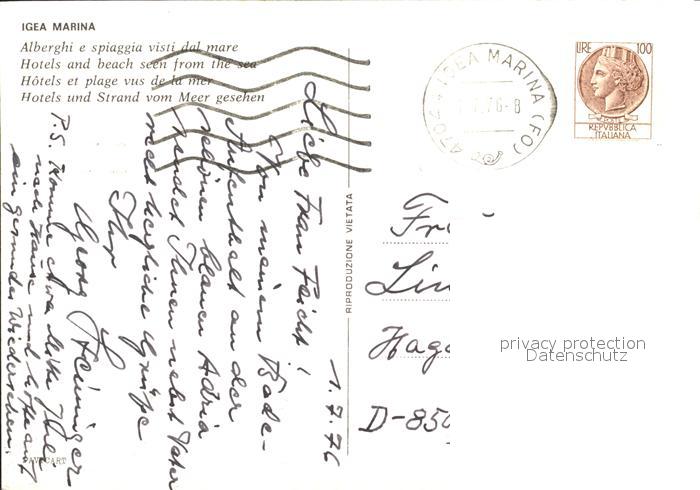 IGEA MARINA
Alberghi e spiaggia visti dal mare
Hotels and beach seen from the sea
Hôtels et plage vus de la mer
Hotels und Strand vom Meer gesehen
1.7.76
Liebe Frau
Von meinem Bade-
Aufenthalt an der
schönen blauen Adria
sendet Ihnen nebst Vater
recht herzliche Grüße
Ihr
Georg
P.S. Komme etwa Mitte Juli
nach Hause und hoffe auf
ein gesundes Wiedersehen.
RIPRODUZIONE VIETATA
IGEA MARINA (FO)
76-8
LIRE 100
REPVBBLICA
ITALIANA
Fr
Lin
Hag
D-850
privacy protection
Datenschutz